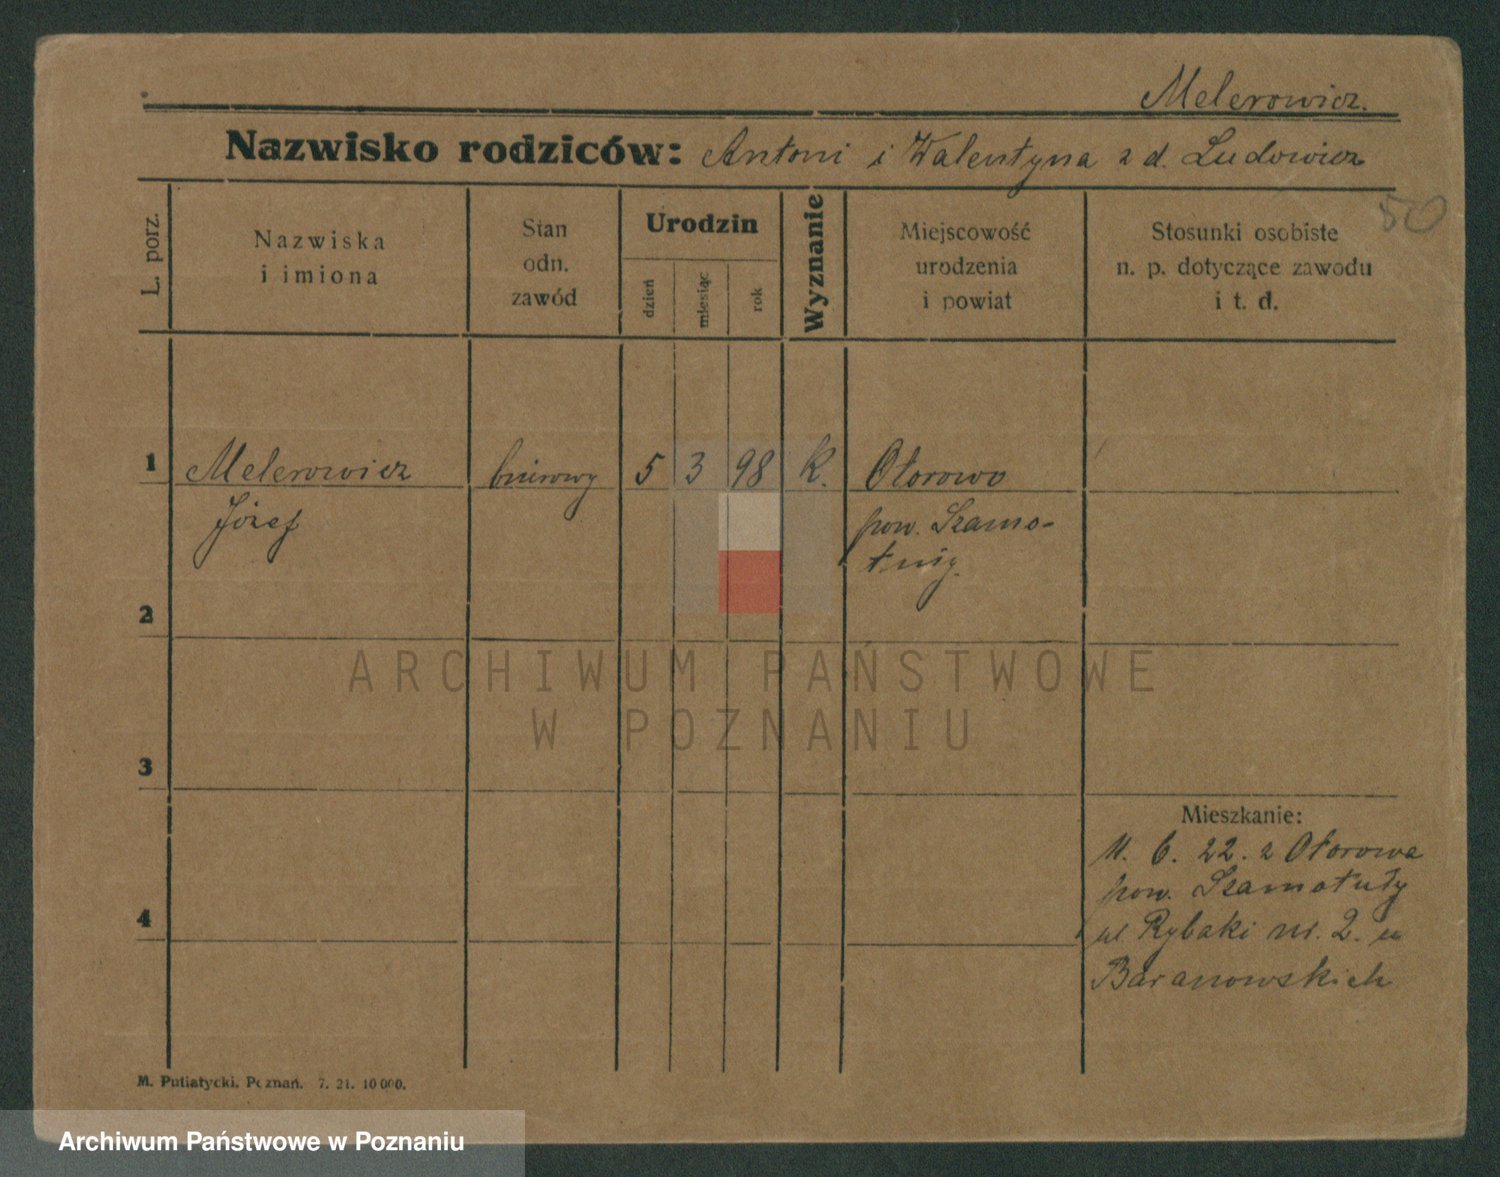 Melerowicz.
Nazwisko rodziców: Antoni i Walentyna z d. Ludowicz
50
L. porz.
Nazwiska
i imiona
Stan
odn.
zawód
Urodzin
dzień
miesiąc
rok
Wyznanie
Miejscowość
urodzenia
i powiat
Stosunki osobiste
n. p. dotyczące zawodu
i t. d.
1 Melerowicz 5 3 98 K. Otorowo
Józef pow. Szamo-
tuły.
2
ARCHIWUM PAŃSTWOWE
W POZNANIU
3
Mieszkanie:
22. z Otorowa
pow. Szamotuły
4
ul Rybaki nr. 2. u
Baranowskich
M. Putiatycki. Poznań. 7. 21. 10000.
Archiwum Państwowe w Poznaniu